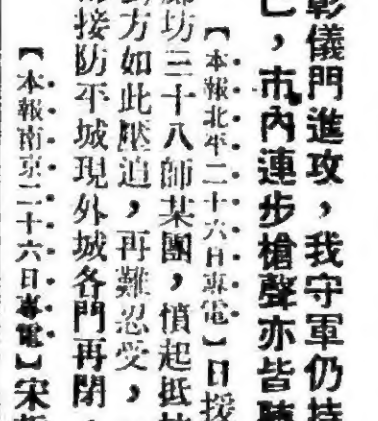 彰儀門進攻，我守軍仍
已，市內連步槍聲亦皆
【本報北平二十六日專電】日援
廊坊三十八師某團，憤起抵
方如此壓迫，再難忍受，
接防平城現外城各門再閉，
【本報南京二十六日專電】宋